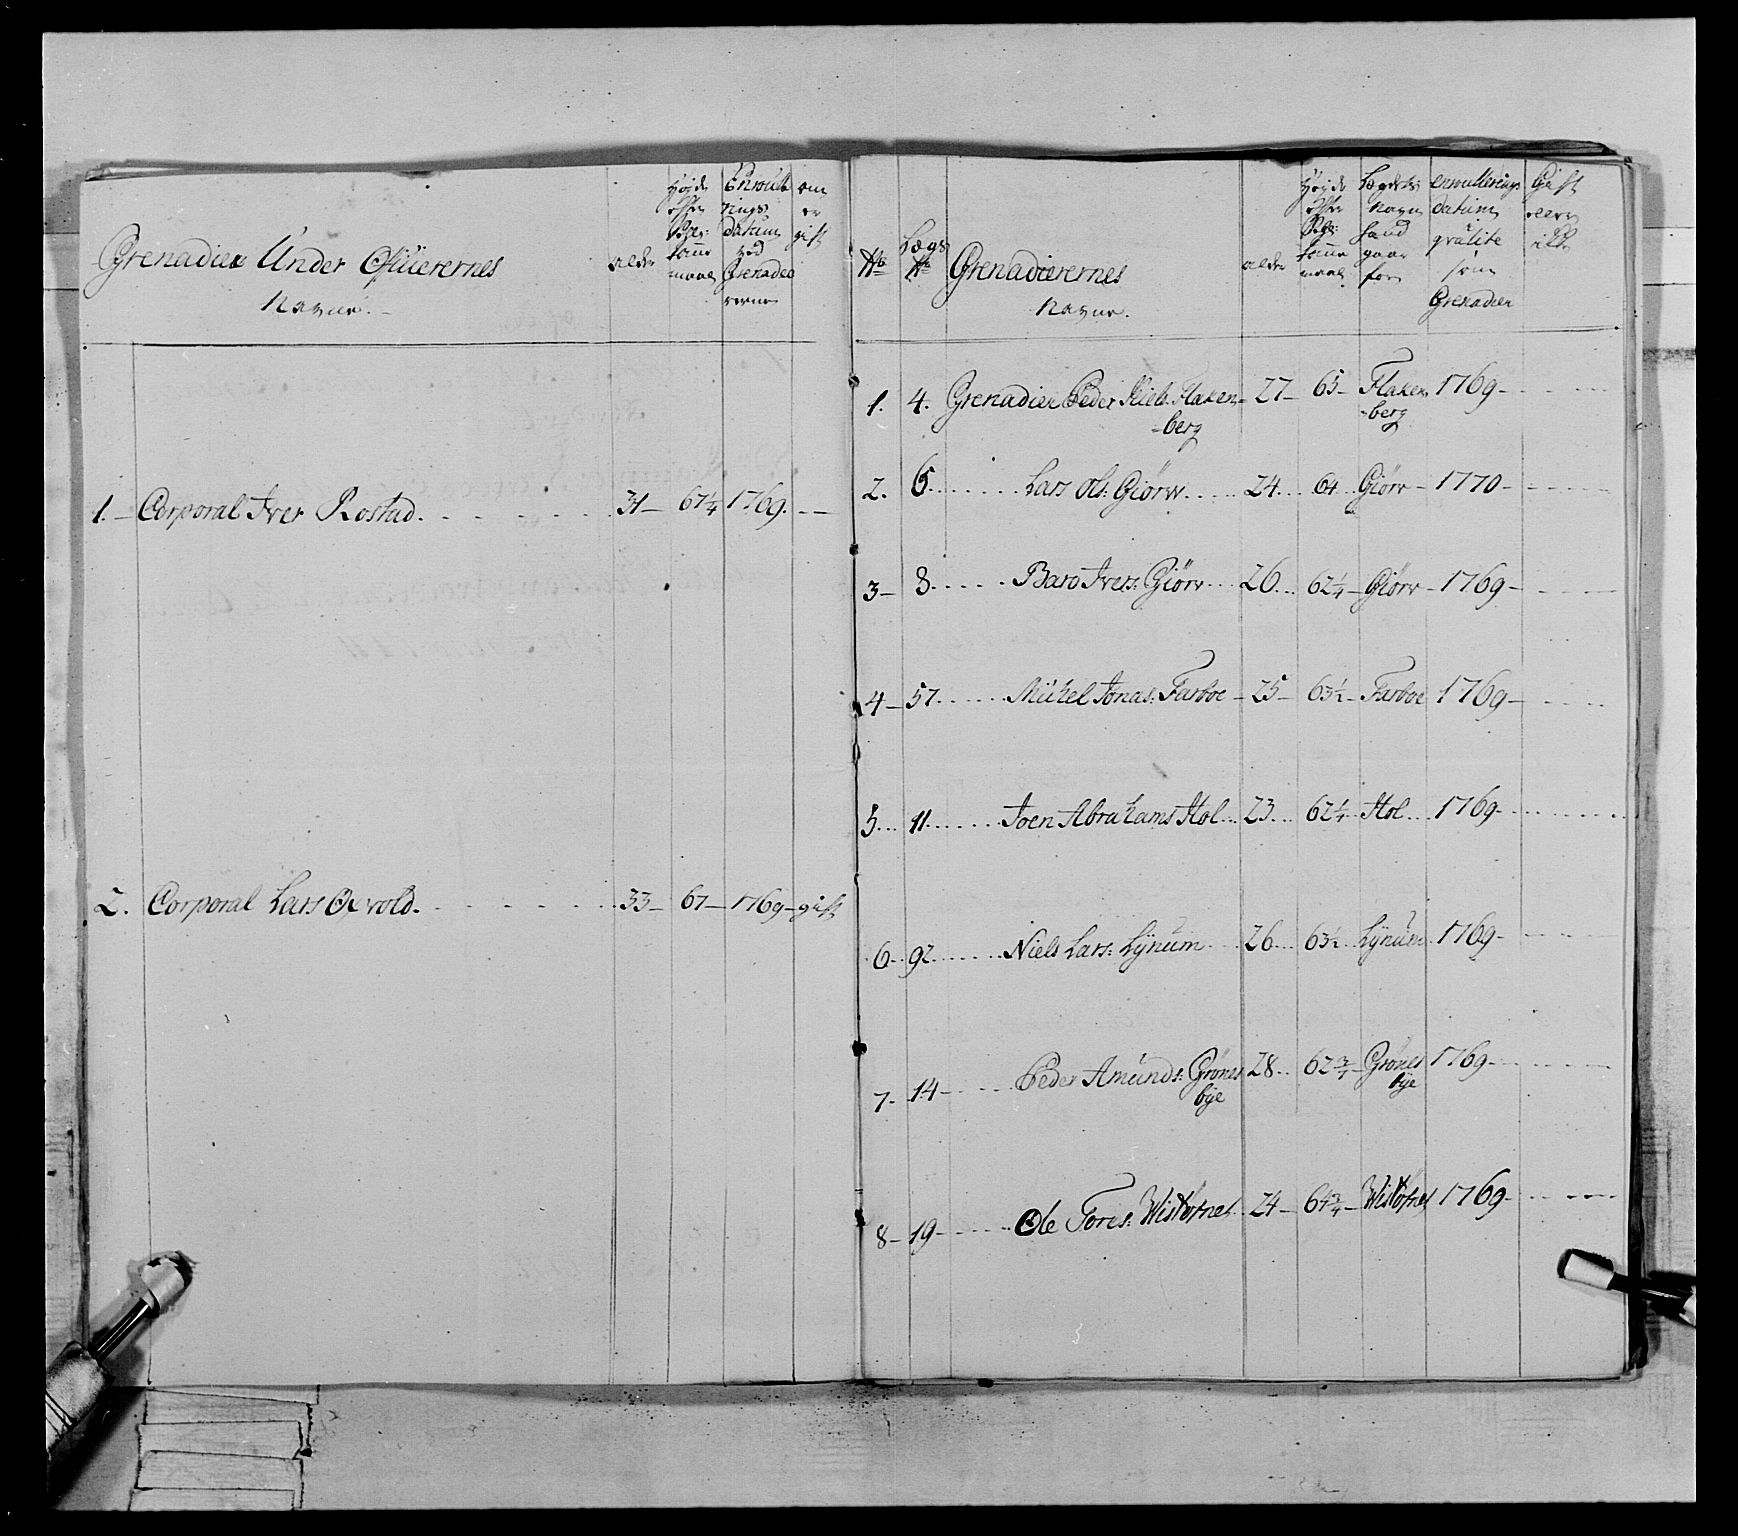 Grenadier Under Officerernes
Navne.
alder
Høyde
efter
tomme
maal
Enroule
rings
datum
ved
Grenadee
rerne
om
er
gift
1. Corporal Iver Rostad. 31 67 1/4 1769.
2. Corporal Lars Opvold. 33 67 1769 gift
No
Lægs
No
Grenadierernes
Navne.
alder
Høyde
efter
tomme
maal
Lægdets
Navn
hand
gaar
for
enroullerings
datum
som
Grenadier
Gift
eller
ikke
1. 4. Grenadier Peder Niels: Flaken 27 65 Flaken 1769
berg berg
2. 6 Lars Ols: Giörv 24 64 Giörv 1770
3 8 Baro Ivers: Giörv 26 62 1/4 Giörv 1769
4 57 Mickel Jonas: Farboe 25 63 1/2 Farboe 1769
5 11 Joen Abrahams Hol 23 62 1/4 Hol 1769
6 92 Niels Lars: Lÿnum 26 63 1/2 Lÿnum 1769
7 14 Peder Amunds: Grönes 28 62 3/4 Grönes 1769
bÿe bÿe
8 19 Ole Tores: Wistefnes 24 64 3/4 Wistefnes 1769